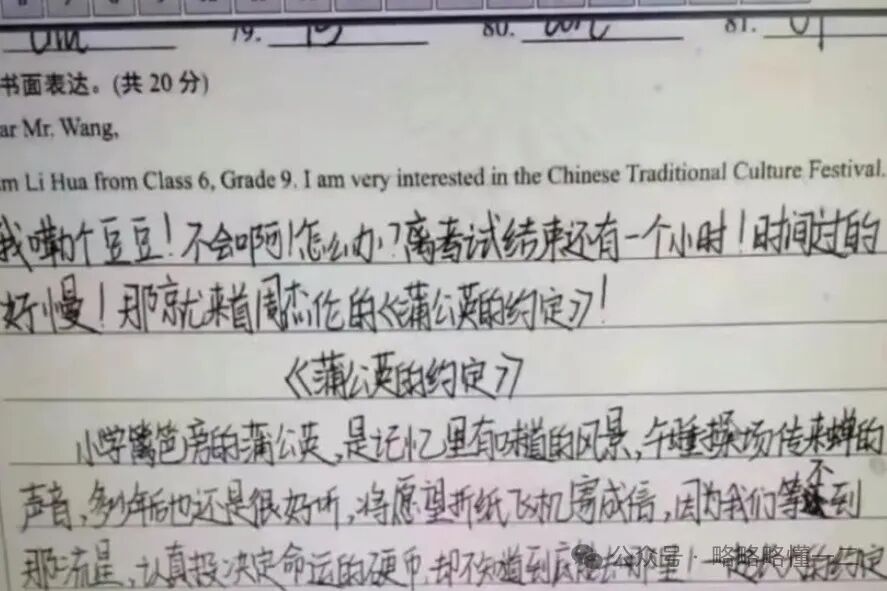 79.
80.
81.
书面表达。(共 20 分)
ar Mr. Wang,
m Li Hua from Class 6, Grade 9. I am very interested in the Chinese Traditional Culture Festival.
我嘞个豆豆!不会啊!怎么办?离考试结束还有一个小时!时间过的
好慢!那就来首周杰伦的《蒲公英的约定》!
《蒲公英的约定》
小学篱笆旁的蒲公英,是记忆里有味道的风景,午睡操场传来蝉的
声音,多少年后也还是很好听,将愿望折纸飞机寄成信,因为我们等不到
那流星,认真投决定命运的硬币,却不知道到底能去哪里!一起长大的约定
公众号 · 略略略懂一二